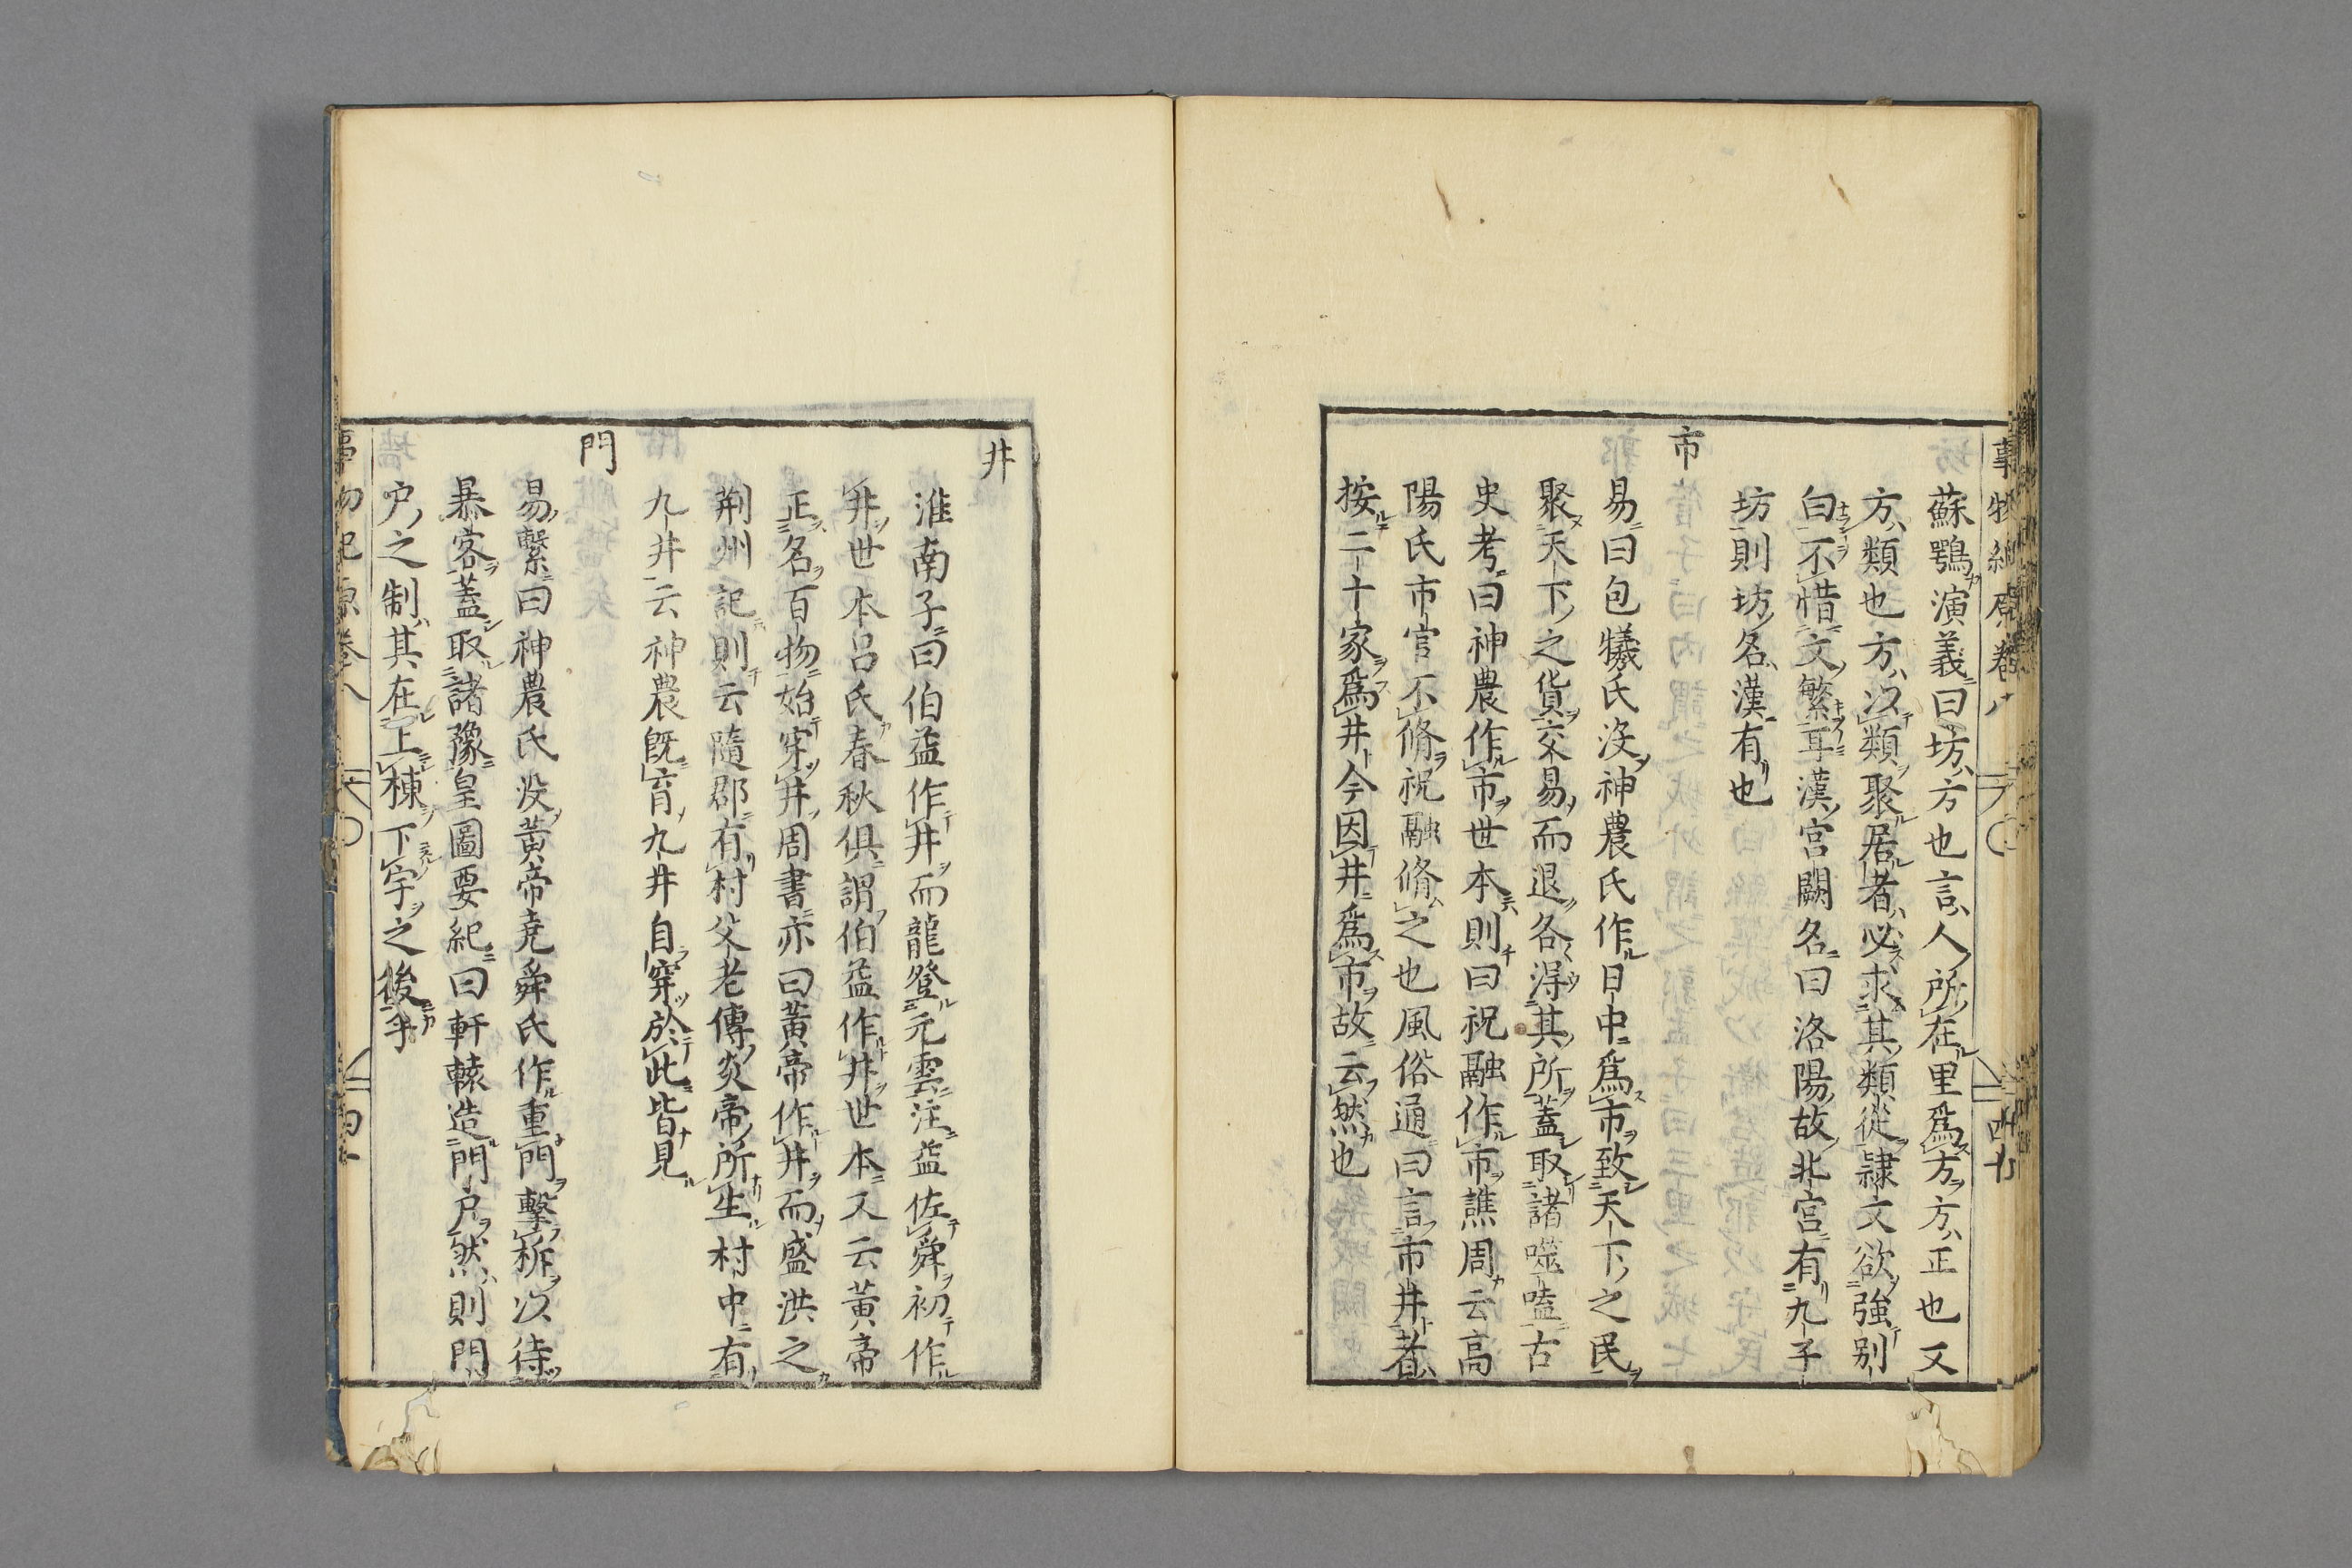 蘇鶚演義曰坊方也言人所在里為方方正也又
方類也方以類聚居者必求其類從隷文欲強别
白不惜文繁耳漢宫闕名曰洛陽故北宫有九子
坊則坊名漢有也
市
易曰包犧氏没神農氏作日中為市致天下之民
聚天下之貨交易而退各得其所蓋取諸噬嗑古
史考曰神農作市世本則曰祝融作市譙周云高
陽氏市官不脩祝融脩之也風俗通曰言市井者
按二十家為井今因井為市故云然也
井
淮南子曰伯益作井而龍登元雲注益佐舜初作
井世本呂氏春秋俱謂伯益作井世本又云黄帝
正名百物始穿井周書亦曰黄帝作井而盛洪之
荆州記則云隨郡有村父老傳炎帝所生村中有
九井云神農既育九井自穿於此皆見
門
易繫曰神農氏没黄帝堯舜氏作重門擊柝以待
暴客蓋取諸豫皇圖要紀曰軒轅造門戸然則門
戸之制其在上棟下宇之後乎